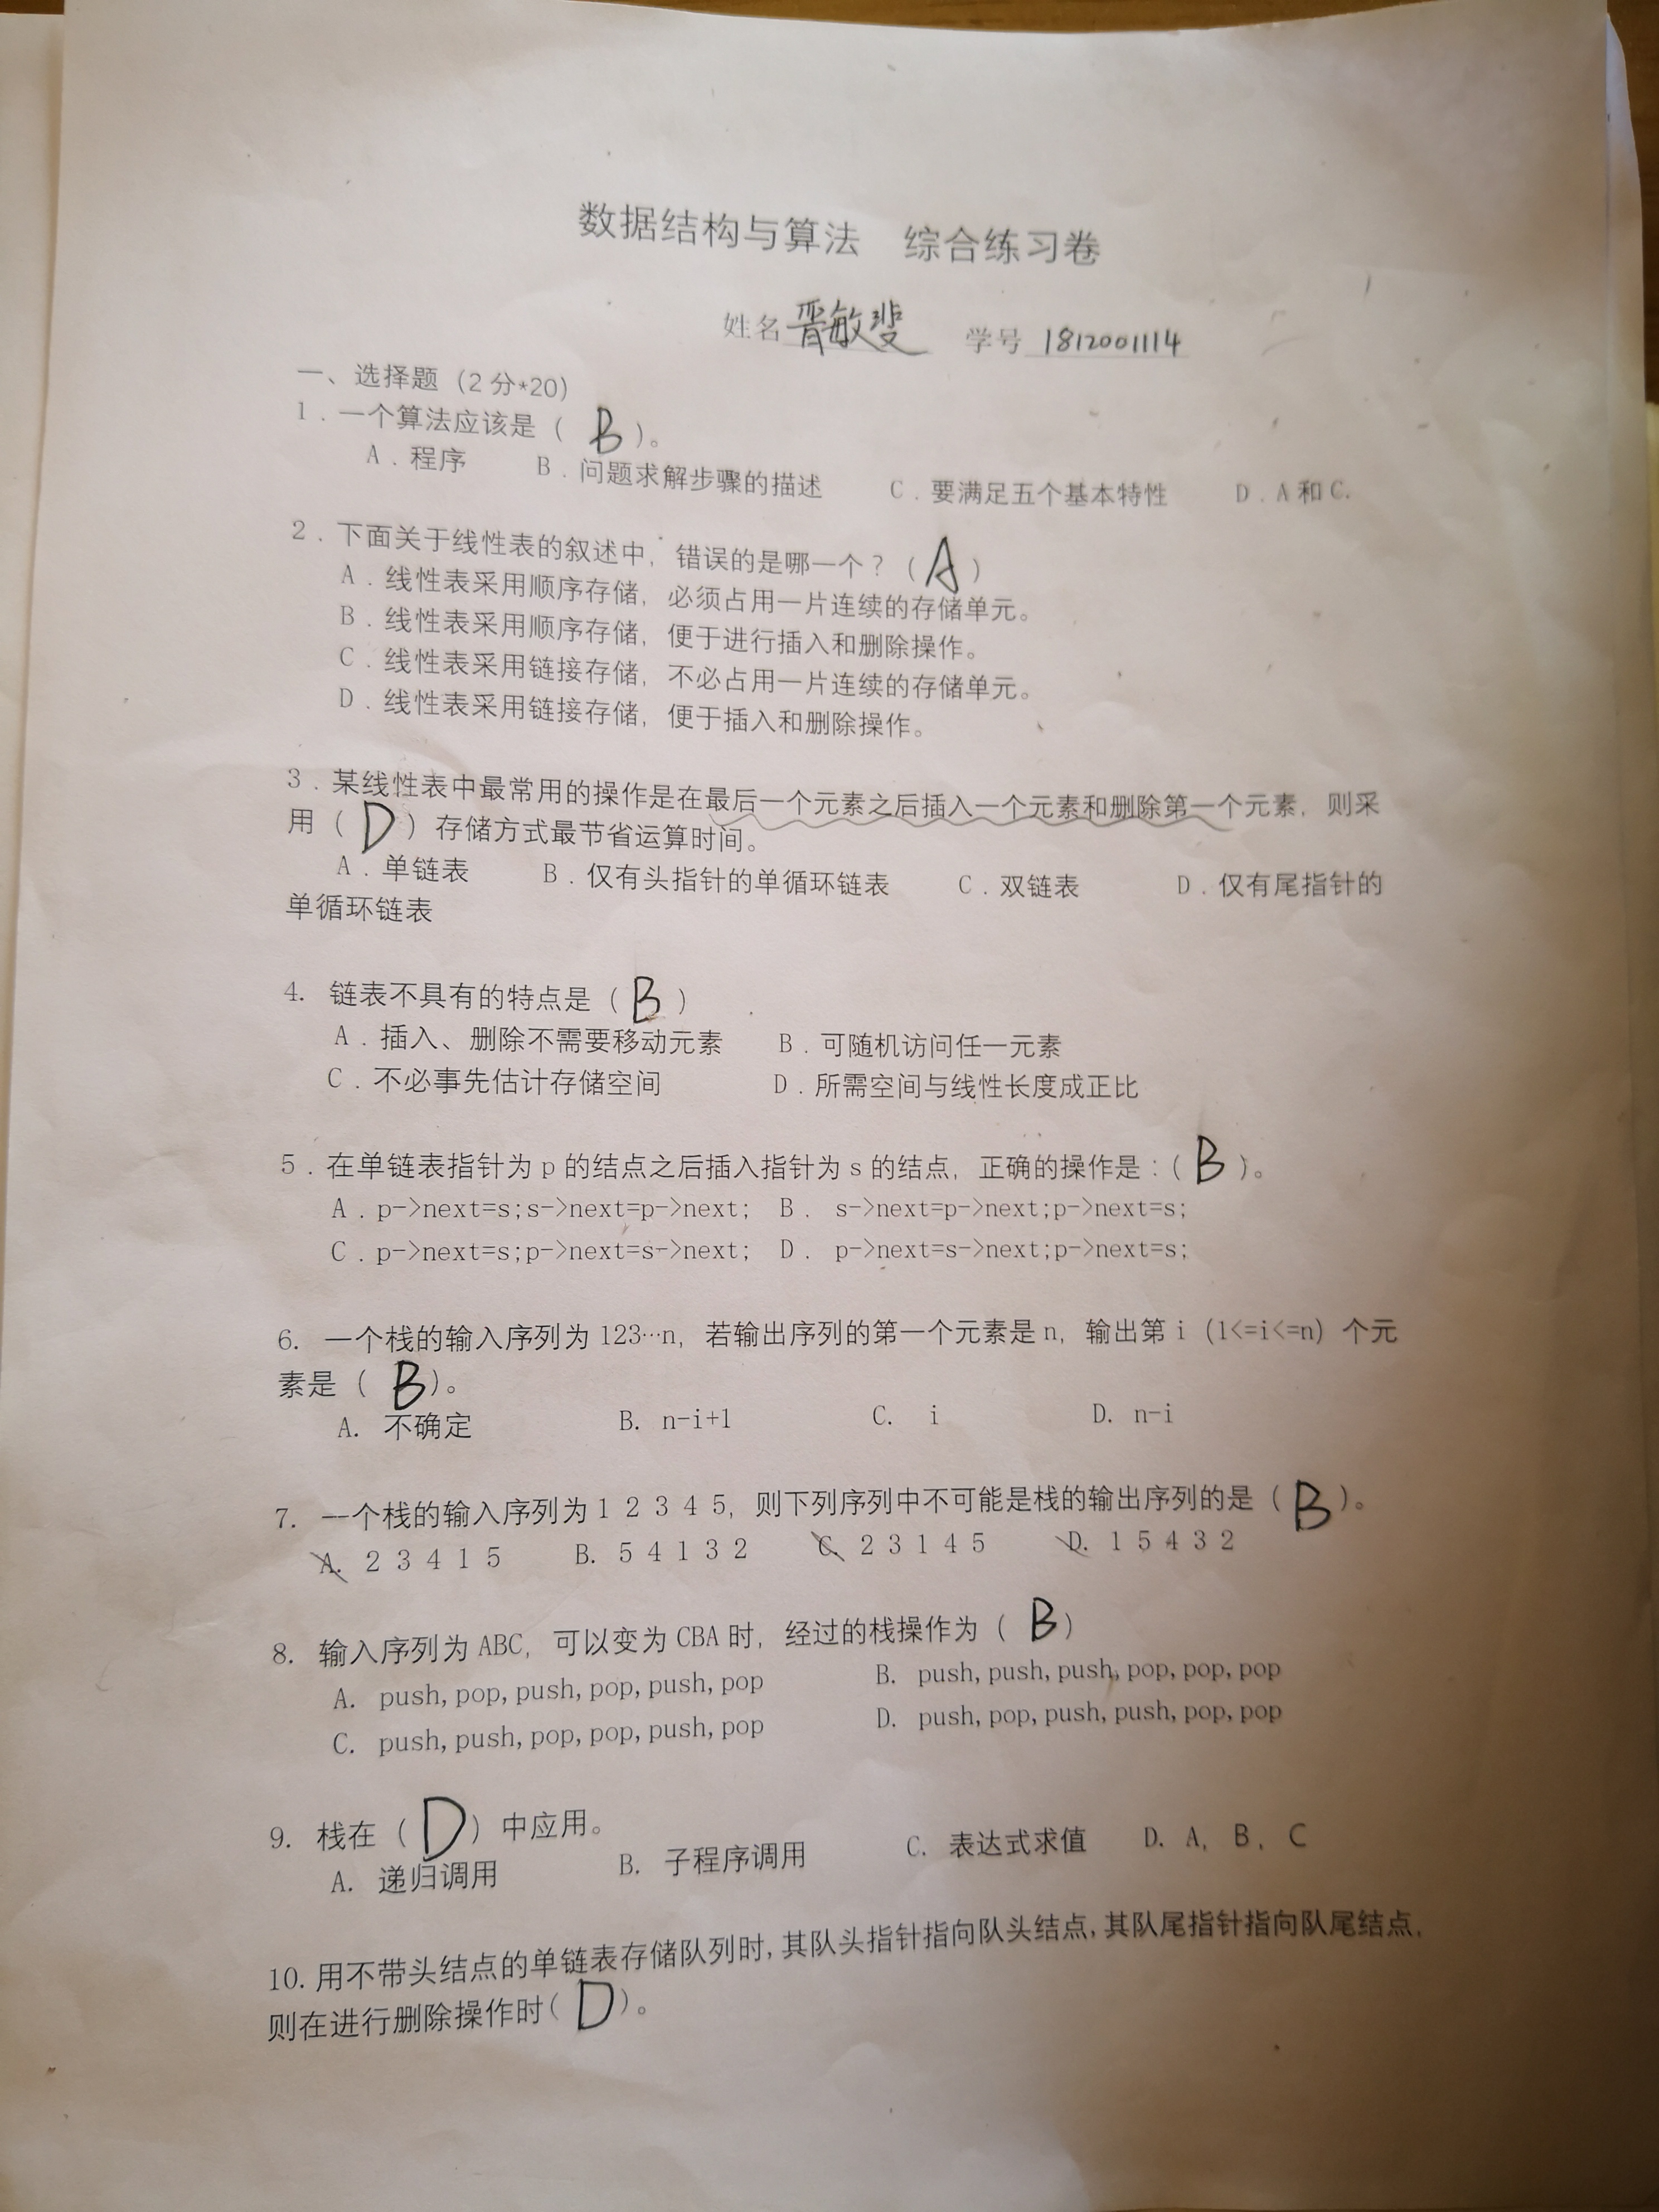 数据结构与算法　综合练习卷
姓名 晋敏斐　学号 1812001114
一、选择题（2 分*20）
1．一个算法应该是（ B ）。
A．程序　B．问题求解步骤的描述　C．要满足五个基本特性　D．A 和 C.
2．下面关于线性表的叙述中，错误的是哪一个？（ A ）
A．线性表采用顺序存储，必须占用一片连续的存储单元。
B．线性表采用顺序存储，便于进行插入和删除操作。
C．线性表采用链接存储，不必占用一片连续的存储单元。
D．线性表采用链接存储，便于插入和删除操作。
3．某线性表中最常用的操作是在最后一个元素之后插入一个元素和删除第一个元素，则采
用（ D ）存储方式最节省运算时间。
A．单链表　B．仅有头指针的单循环链表　C．双链表　D．仅有尾指针的
单循环链表
4. 链表不具有的特点是（ B ）
A．插入、删除不需要移动元素　B．可随机访问任一元素
C．不必事先估计存储空间　D．所需空间与线性长度成正比
5．在单链表指针为 p 的结点之后插入指针为 s 的结点，正确的操作是：( B )。
A．p->next=s;s->next=p->next;　B． s->next=p->next;p->next=s;
C．p->next=s;p->next=s->next;　D． p->next=s->next;p->next=s;
6. 一个栈的输入序列为 123…n，若输出序列的第一个元素是 n，输出第 i（1<=i<=n）个元
素是（ B ）。
A. 不确定　B. n-i+1　C. i　D. n-i
7. 一个栈的输入序列为 1 2 3 4 5，则下列序列中不可能是栈的输出序列的是（ B ）。
A. 2 3 4 1 5　B. 5 4 1 3 2　C. 2 3 1 4 5　D. 1 5 4 3 2
8. 输入序列为 ABC，可以变为 CBA 时，经过的栈操作为（ B ）
A. push, pop, push, pop, push, pop　B. push, push, push, pop, pop, pop
C. push, push, pop, pop, push, pop　D. push, pop, push, push, pop, pop
9. 栈在（ D ）中应用。
A. 递归调用　B. 子程序调用　C. 表达式求值　D. A，B，C
10. 用不带头结点的单链表存储队列时,其队头指针指向队头结点,其队尾指针指向队尾结点,
则在进行删除操作时( D )。